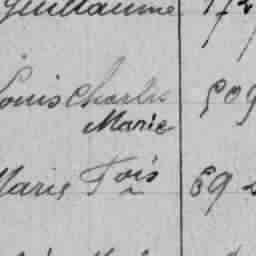 Guillaume 172
Louis Charles 509
Marie
Marie Fois 69